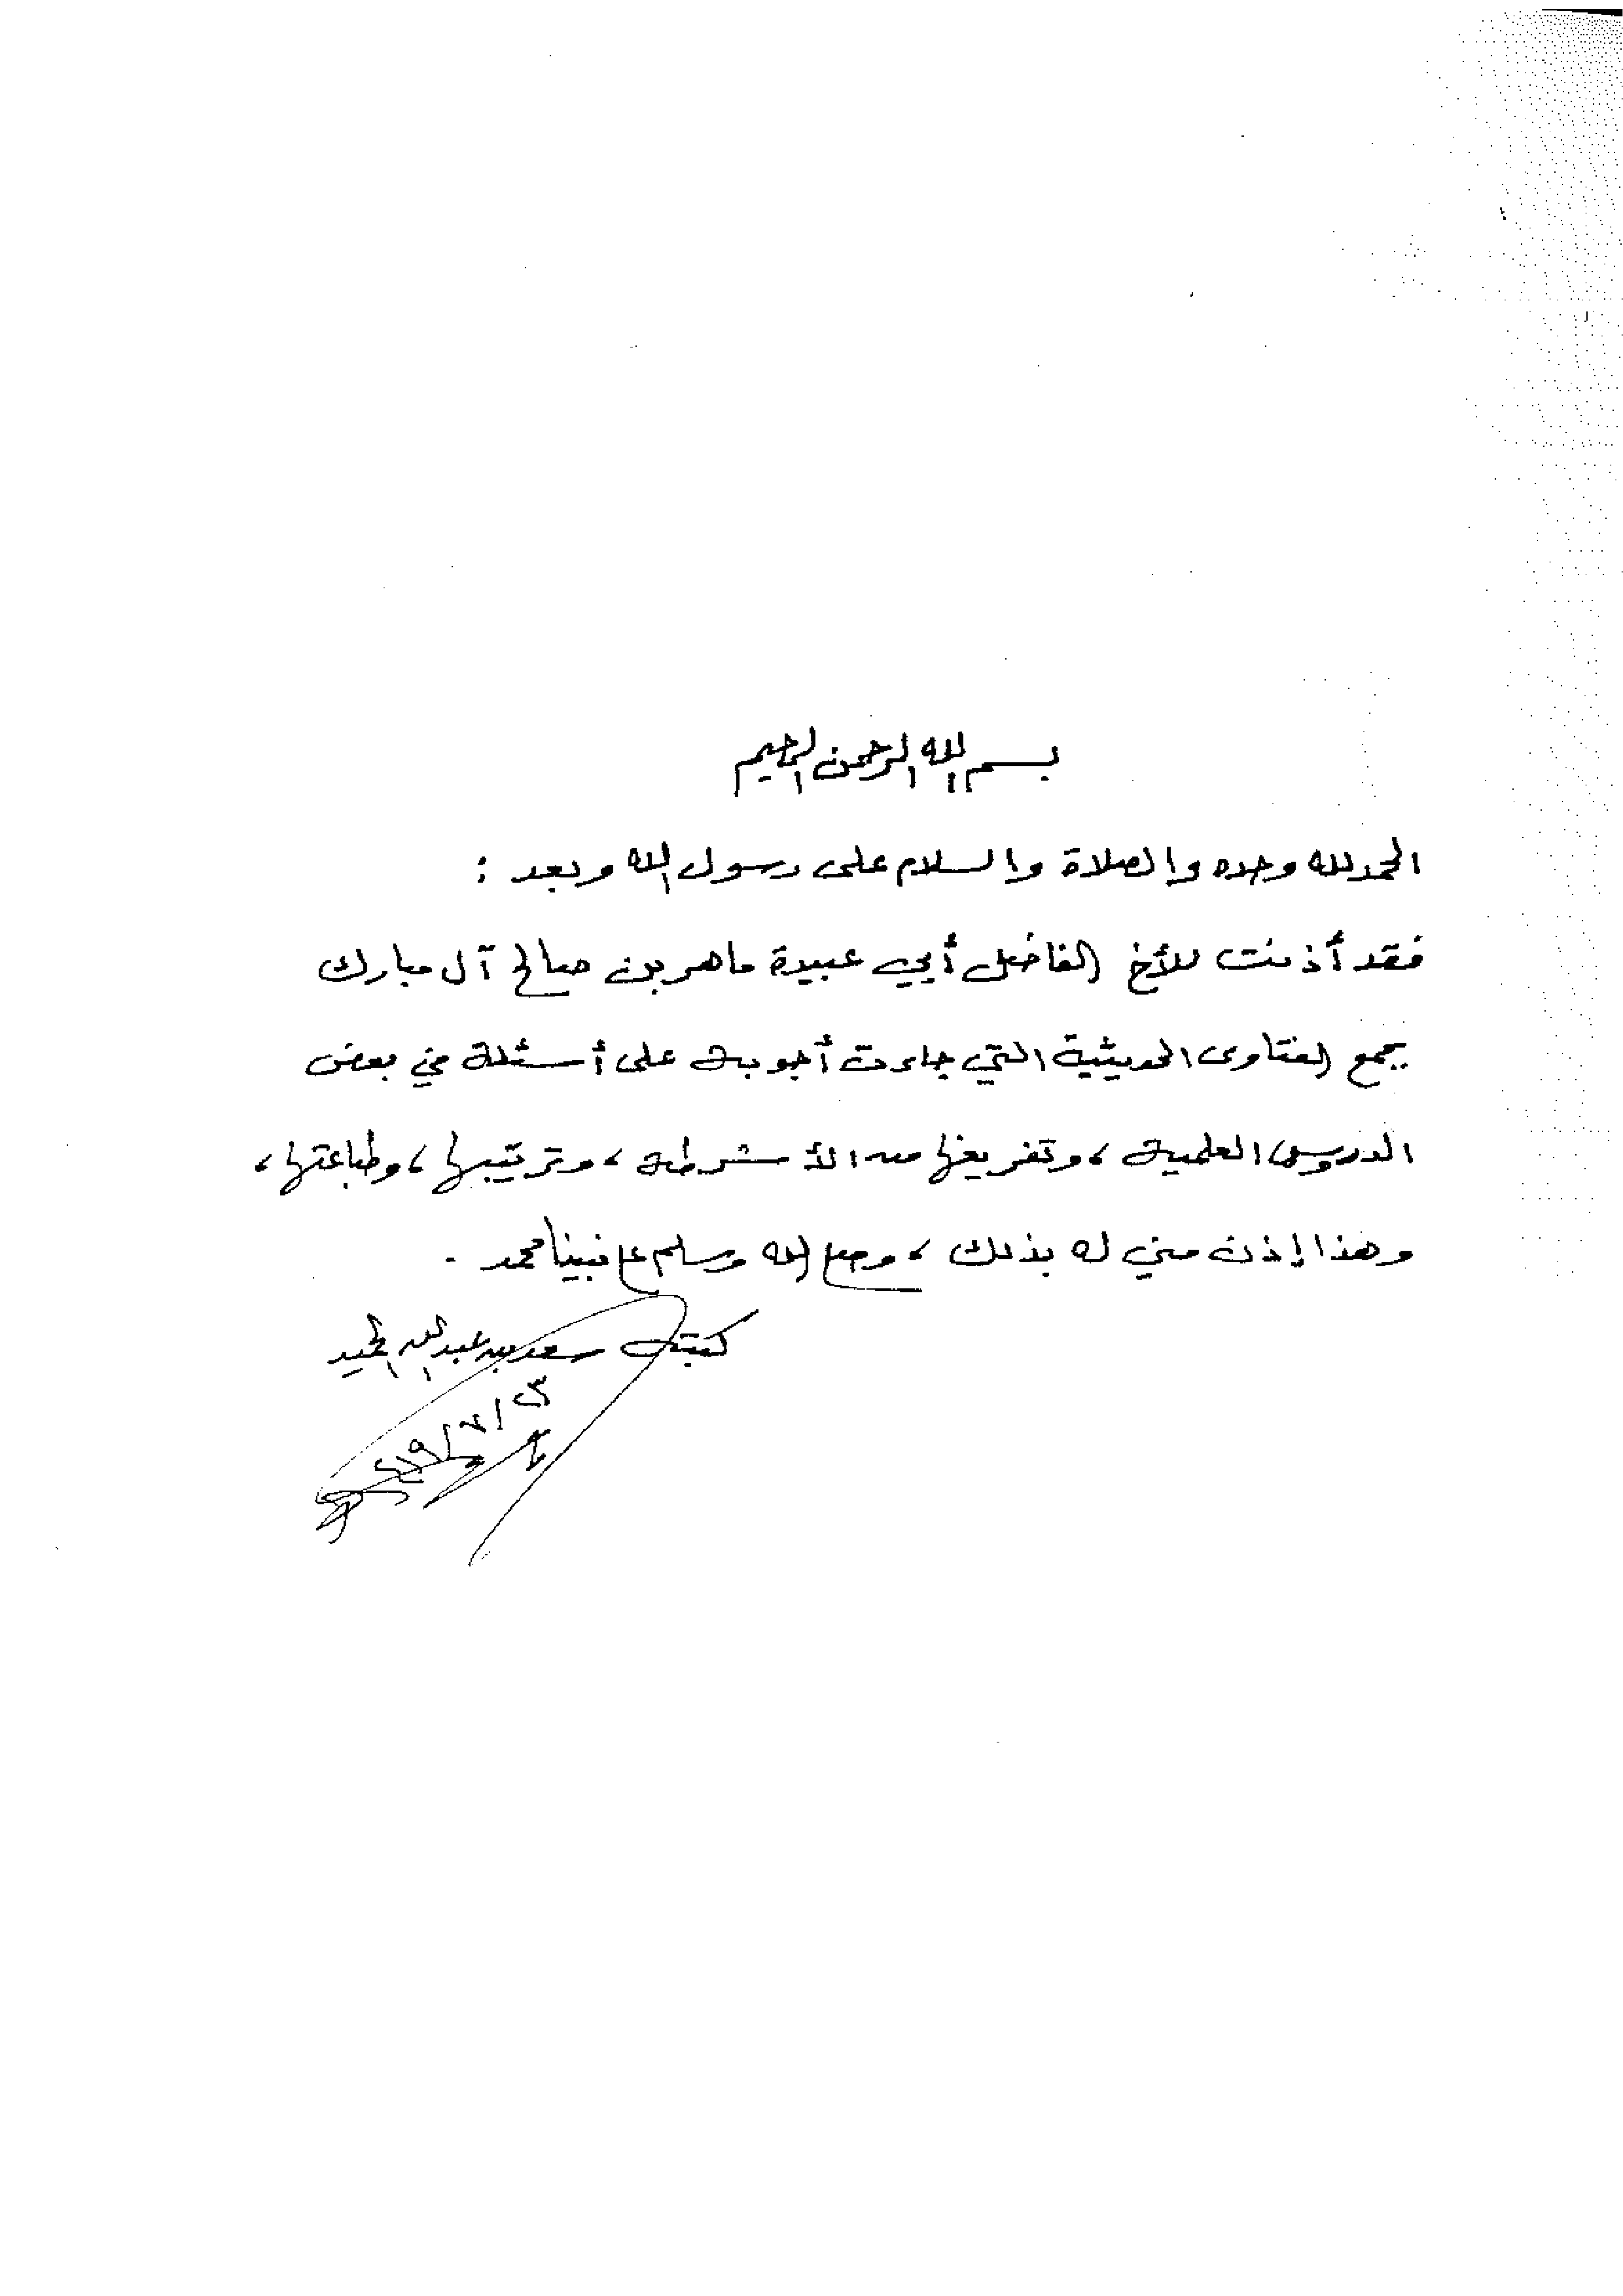 بسم الله الرحمن الرحيم
الحمد لله وحده والصلاة والسلام على رسول الله وبعد :
فقد أذنت للأخ الفاضل أبي عبيدة ماهر بن صالح آل مبارك
بجمع الفتاوى الحديثية التي جاءت أجوبة على أسئلة في بعض
الدروس العلمية ، وتفريغها من الأشرطة ، وترتيبها ، وطباعتها ،
وهذا إذن مني له بذلك ، وصلى الله وسلم على نبينا محمد .
كتبه سعد بن عبدالله الحميد